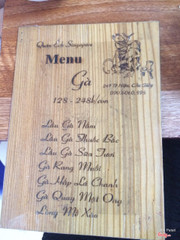 Quán Ếch Singapore
Menu
Gà
128 - 248k/con
Lẩu Gà Nấm
Lẩu Gà Thuốc Bắc
Lẩu Gà Sâm Tươi
Gà Rang Muối
Gà Hấp Lá Chanh
Gà Quay Mật Ong
Lòng Mề Xào